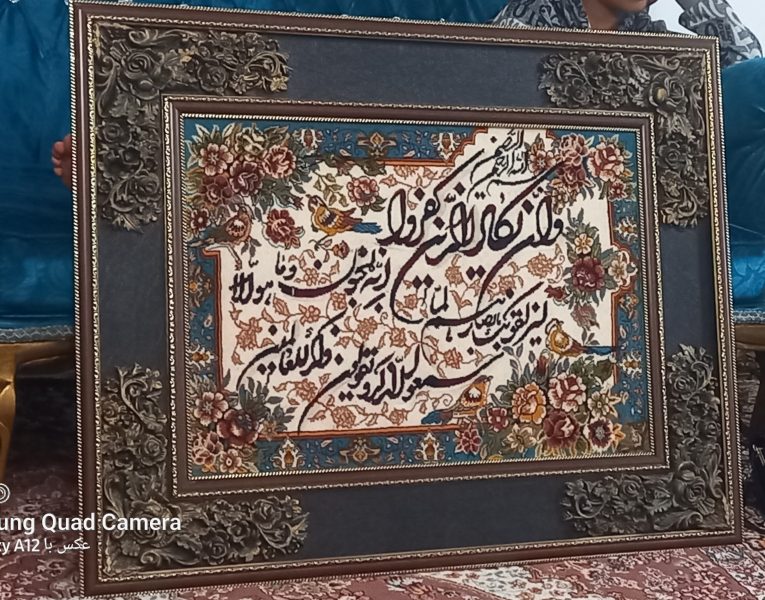 بسم الله الرحمن الرحیم
وان یکاد الذین کفروا
لیزلقونک بابصارهم لما
سمعوا الذکر ویقولون
انه لمجنون وما هو الا
ذکر للعالمین
ung Quad Camera
xy A12 عکس با